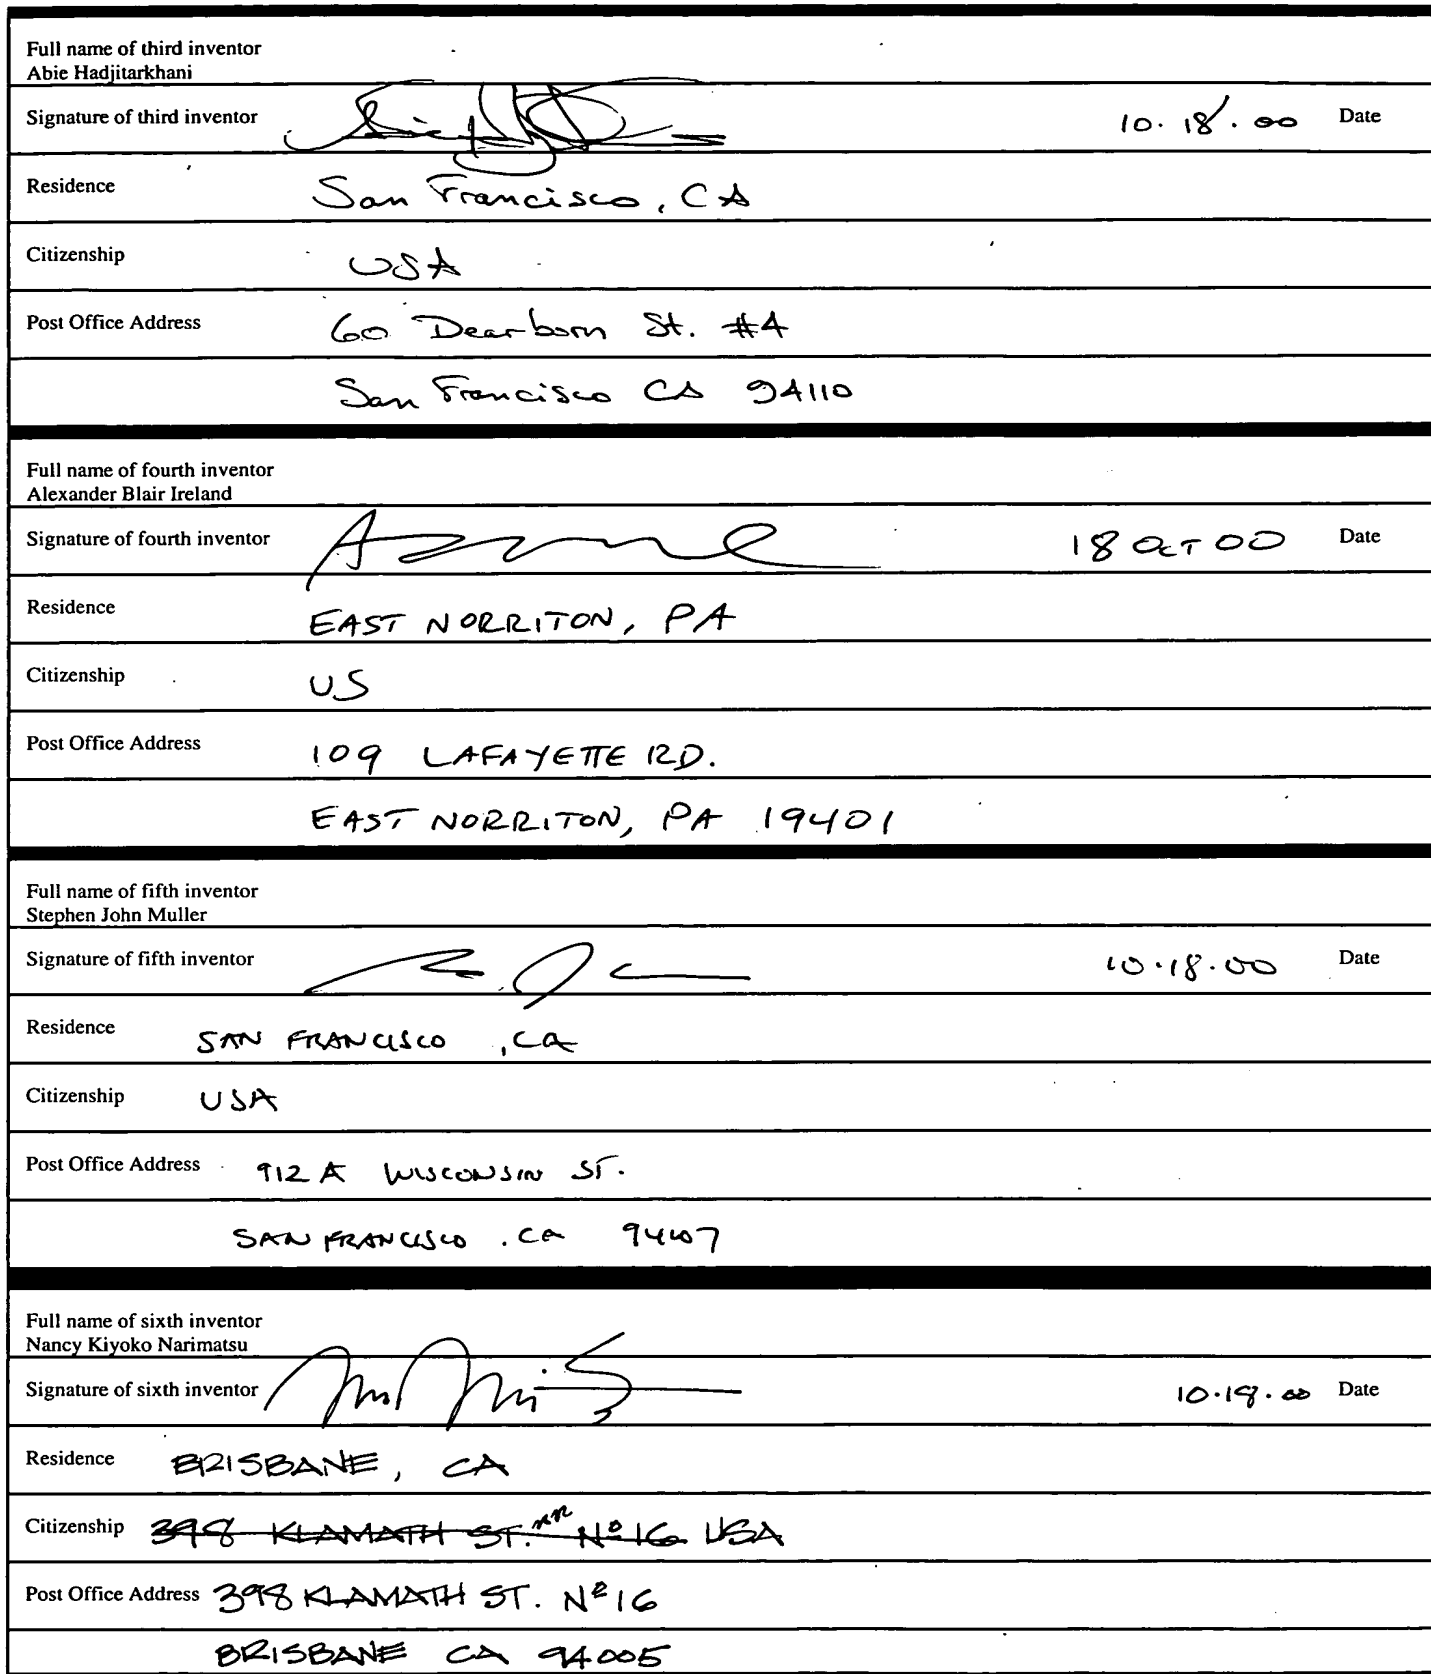 Full name of third inventor
Abie Hadjitarkhani
Signature of third inventor 10.18.00 Date
Residence San Francisco, CA
Citizenship USA
Post Office Address 60 Dearborn St. #4
San Francisco CA 94110
Full name of fourth inventor
Alexander Blair Ireland
Signature of fourth inventor 18 OCT 00 Date
Residence EAST NORRITON, PA
Citizenship US
Post Office Address 109 LAFAYETTE RD.
EAST NORRITON, PA 19401
Full name of fifth inventor
Stephen John Muller
Signature of fifth inventor 10.18.00 Date
Residence SAN FRANCISCO, CA
Citizenship USA
Post Office Address 912 A WISCONSIN ST.
SAN FRANCISCO . CA 94107
Full name of sixth inventor
Nancy Kiyoko Narimatsu
Signature of sixth inventor 10.18.00 Date
Residence BRISBANE, CA
Citizenship 398 KLAMATH ST. Nº 16 USA
Post Office Address 398 KLAMATH ST. Nº 16
BRISBANE CA 94005